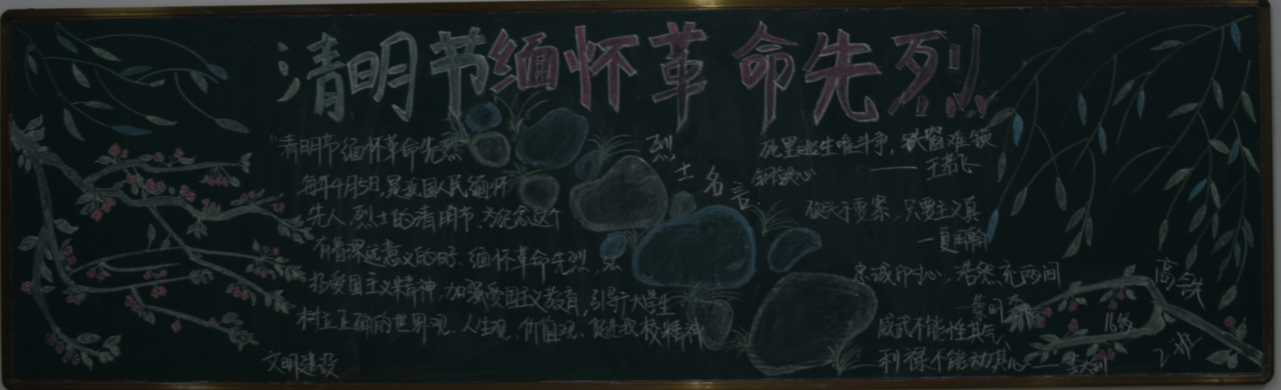 清明节缅怀革命先烈
"清明节缅怀革命先烈
每年4月5日,是我国人民缅怀
先人、烈士的清明节.为纪念这个
有着深远意义的日子、缅怀革命先烈,
扬爱国主义精神,加强爱国主义教育,引导广大学生
树立正确的世界观、人生观、价值观、促进我校精神
文明建设
烈士名言
死里逃生唯斗争,铁窗难锁
钢铁心
——王若飞
砍头不要紧,只要主义真
—夏明翰
忠诚印寸心,浩然充两间
威武不能性其气
利禄不能动其心——李大钊
高铁
16级
2班